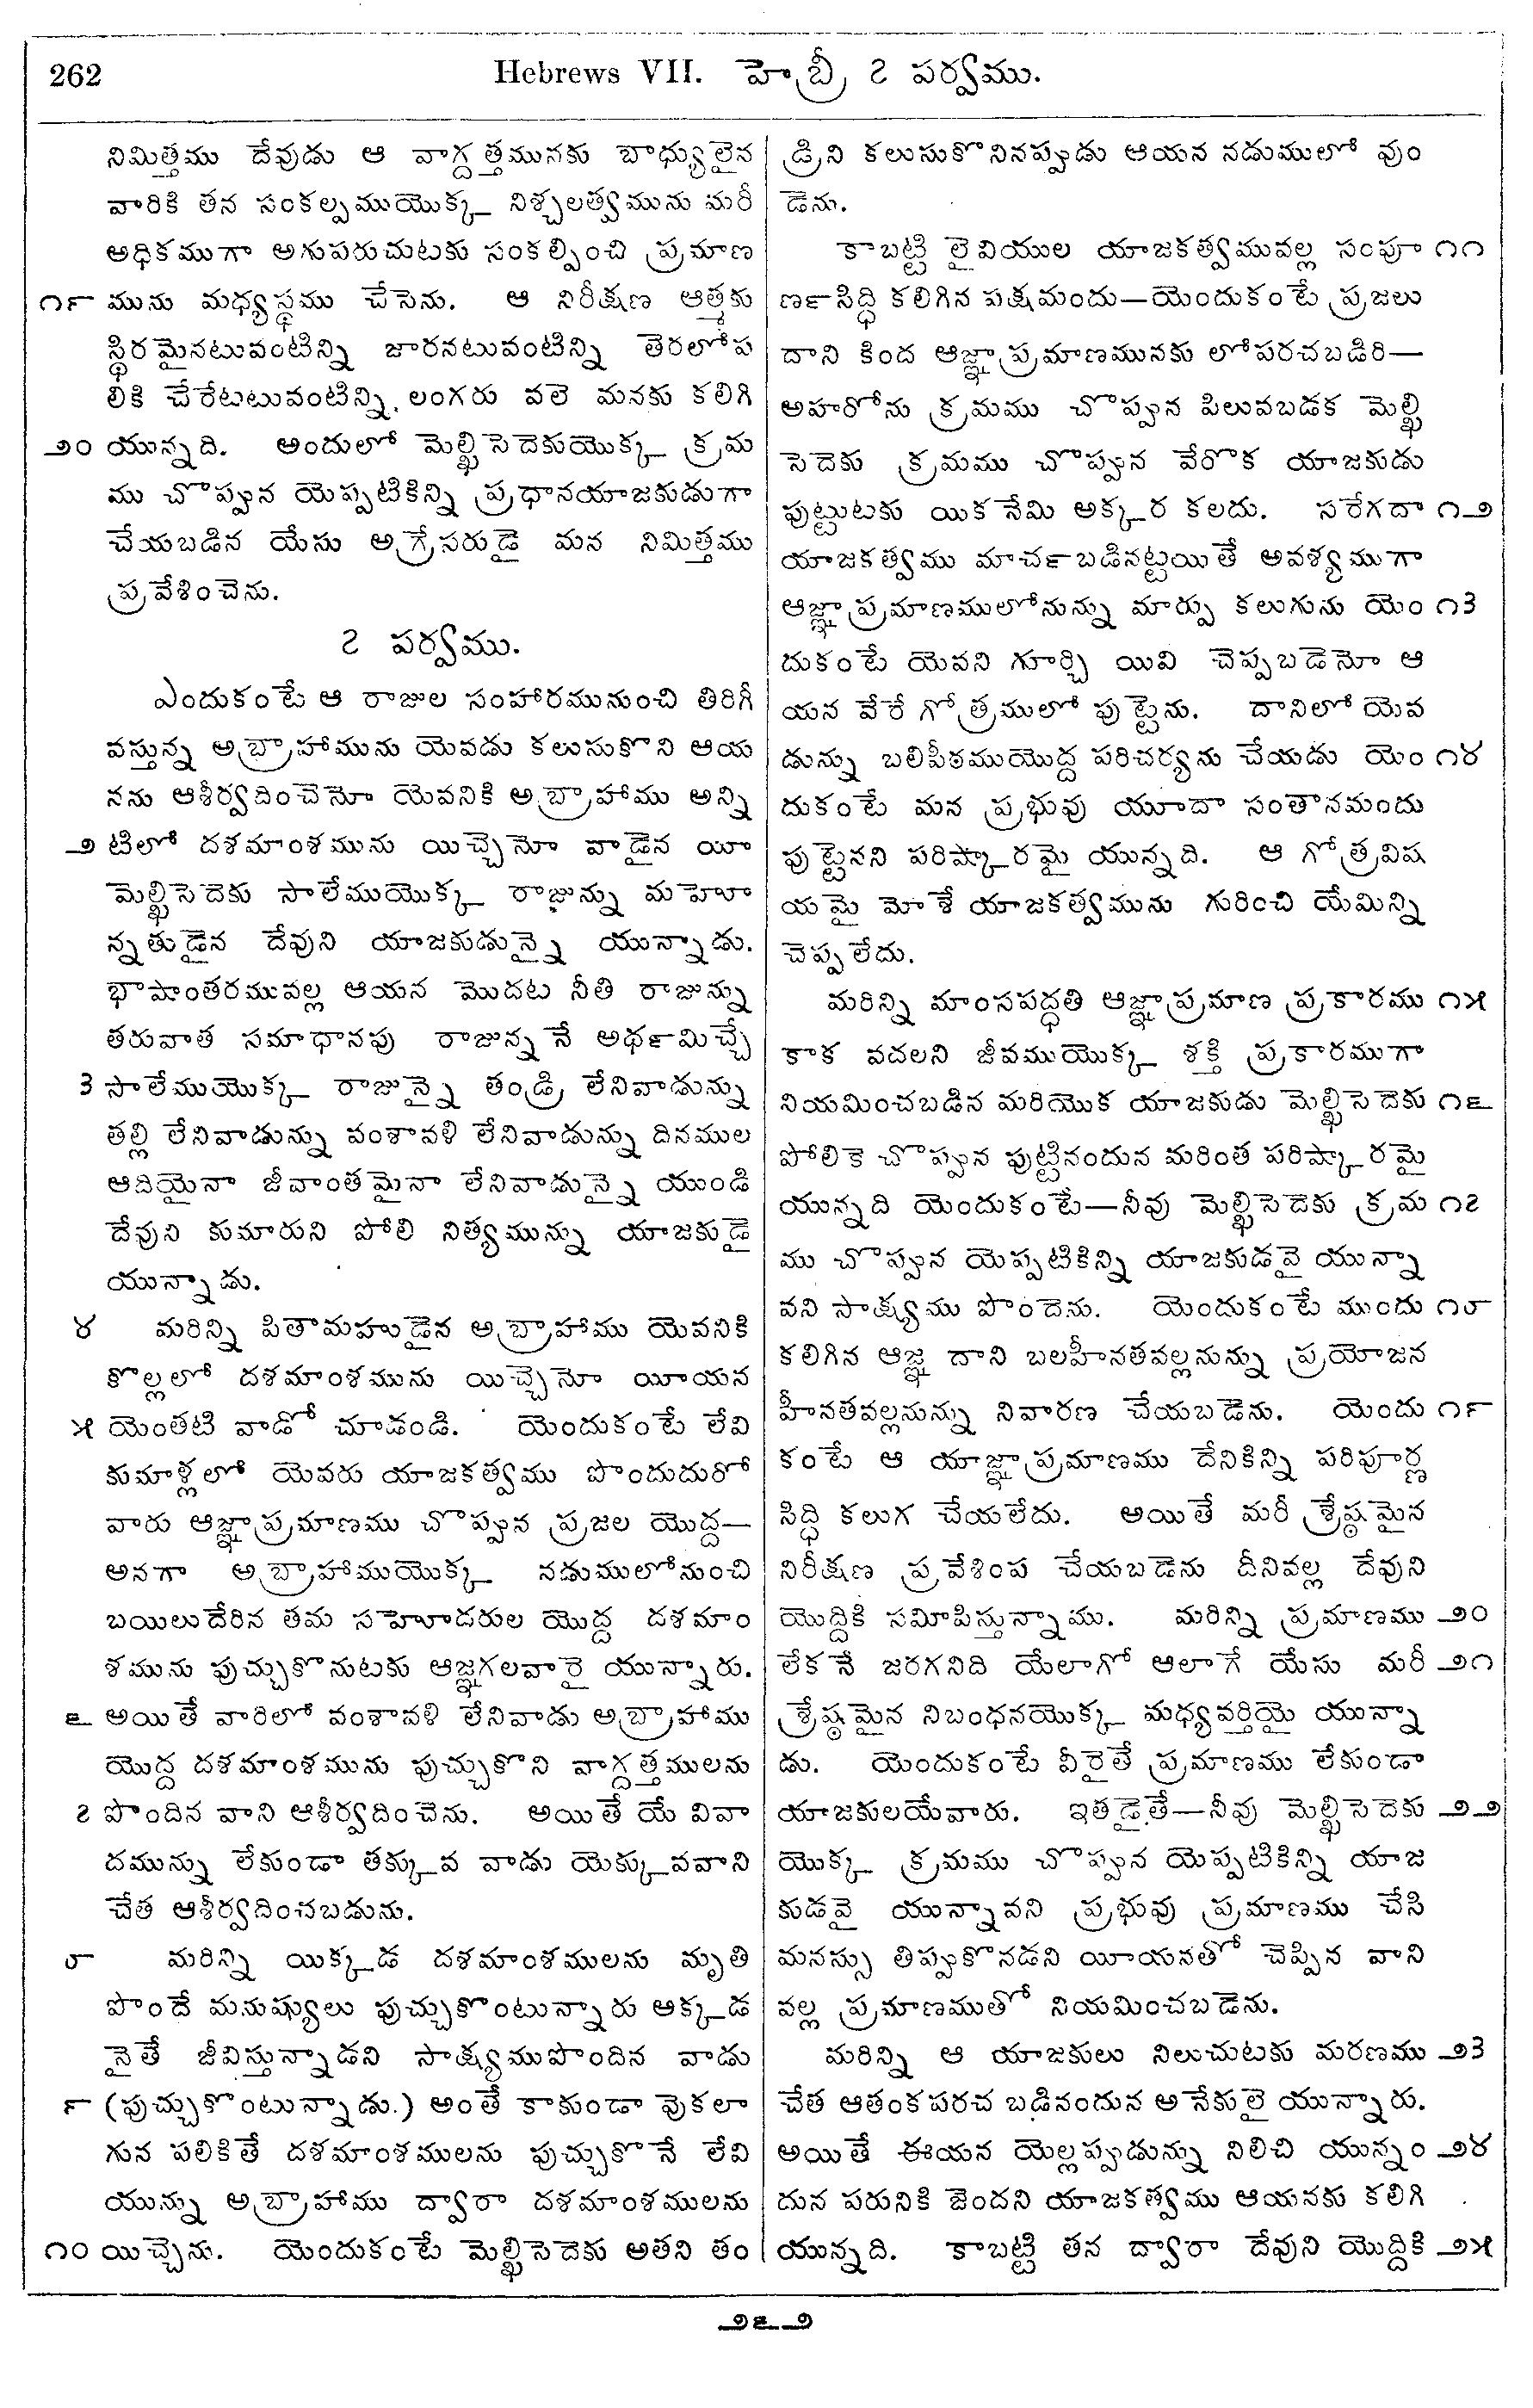 262
Hebrews VII. హెబ్రీ ౭ పర్వము.
నిమిత్తము దేవుడు ఆ వాగ్దత్తమునకు బాధ్యులైన
వారికి తన సంకల్పముయొక్క నిశ్చలత్వమును మరీ
అధికముగా అగుపరుచుటకు సంకల్పించి ప్రమాణ
౧౯ మును మధ్యస్థము చేసెను. ఆ నిరీక్షణ ఆత్మకు
స్థిరమైనటువంటిన్ని జారనటువంటిన్ని తెరలోప
లికి చేరేటటువంటిన్ని లంగరు వలె మనకు కలిగి
౨౦ యున్నది. అందులో మెల్ఖిసెదెకుయొక్క క్రమ
ము చొప్పున యెప్పటికిన్ని ప్రధానయాజకుడుగా
చేయబడిన యేసు అగ్రేసరుడై మన నిమిత్తము
ప్రవేశించెను.
౭ పర్వము.
ఎందుకంటే ఆ రాజుల సంహారమునుంచి తిరిగీ
వస్తున్న అబ్రాహామును యెవడు కలుసుకొని ఆయ
నను ఆశీర్వదించెనో యెవనికి అబ్రాహాము అన్ని
౨ టిలో దశమాంశమును యిచ్చెనో వాడైన యీ
మెల్ఖిసెదెకు సాలేముయొక్క రాజున్ను మహో
న్నతుడైన దేవుని యాజకుడున్నై యున్నాడు.
భాషాంతరమువల్ల ఆయన మొదట నీతి రాజున్ను
తరువాత సమాధానపు రాజున్ననే అథ౯మిచ్చే
౩ సాలేముయొక్క రాజున్నై తండ్రి లేనివాడున్ను
తల్లి లేనివాడున్ను వంశావళి లేనివాడున్ను దినముల
ఆదియైనా జీవాంతమైనా లేనివాడున్నై యుండి
దేవుని కుమారుని పోలి నిత్యమున్ను యాజకుడై
యున్నాడు.
౪ మరిన్ని పితామహుడైన అబ్రాహాము యెవనికి
కొల్లలో దశమాంశమును యిచ్చెనో యీయన
౫ యెంతటి వాడో చూడండి. యెందుకంటే లేవి
కుమాళ్లలో యెవరు యాజకత్వము పొందుదురో
వారు ఆజ్ఞాప్రమాణము చొప్పున ప్రజల యొద్ద—
అనగా అబ్రాహాముయొక్క నడుములోనుంచి
బయిలుదేరిన తమ సహోదరుల యొద్ద దశమాం
శమును పుచ్చుకొనుటకు ఆజ్ఞగలవారై యున్నారు.
౬ అయితే వారిలో వంశావళి లేనివాడు అబ్రాహాము
యొద్ద దశమాంశమును పుచ్చుకొని వాగ్దత్తములను
౭ పొందిన వాని ఆశీర్వదించెను. అయితే యే వివా
దమున్ను లేకుండా తక్కువ వాడు యెక్కువవాని
చేత ఆశీర్వదించబడును.
౮ మరిన్ని యిక్కడ దశమాంశములను మృతి
పొందే మనుష్యులు పుచ్చుకొంటున్నారు అక్కడ
నైతే జీవిస్తున్నాడని సాక్ష్యముపొందిన వాడు
౯ (పుచ్చుకొంటున్నాడు.) అంతే కాకుండా వొకలా
గున పలికితే దశమాంశములను పుచ్చుకొనే లేవి
యున్ను అబ్రాహాము ద్వారా దశమాంశములను
౧౦ యిచ్చెను. యెందుకంటే మెల్ఖిసెదెకు అతని తం
డ్రిని కలుసుకొనినప్పుడు ఆయన నడుములో వుం
డెను.
కాబట్టి లైవియుల యాజకత్వమువల్ల సంపూ ౧౧
ణ౯సిద్ధి కలిగిన పక్షమందు—యెందుకంటే ప్రజలు
దాని కింద ఆజ్ఞాప్రమాణమునకు లోపరచబడిరి—
అహరోను క్రమము చొప్పున పిలువబడక మెల్ఖి
సెదెకు క్రమము చొప్పున వేరొక యాజకుడు
పుట్టుటకు యికనేమి అక్కర కలదు. సరేగదా ౧౨
యాజకత్వము మాచ౯బడినట్టయితే అవశ్యముగా
ఆజ్ఞాప్రమాణములోనున్ను మార్పు కలుగును యెం ౧౩
దుకంటే యెవని గూర్చి యివి చెప్పబడెనో ఆ
యన వేరే గోత్రములో పుట్టెను. దానిలో యెవ
డున్ను బలిపీఠముయొద్ద పరిచర్యను చేయడు యెం ౧౪
దుకంటే మన ప్రభువు యూదా సంతానమందు
పుట్టెనని పరిష్కారమై యున్నది. ఆ గోత్రవిష
యమై మోశే యాజకత్వమును గురించి యేమిన్ని
చెప్పలేదు.
మరిన్ని మాంసపద్ధతి ఆజ్ఞాప్రమాణ ప్రకారము ౧౫
కాక వదలని జీవముయొక్క శక్తి ప్రకారముగా
నియమించబడిన మరియొక యాజకుడు మెల్ఖిసెదెకు ౧౬
పోలికె చొప్పున పుట్టినందున మరింత పరిష్కారమై
యున్నది యెందుకంటే—నీవు మెల్ఖిసెదెకు క్రమ ౧౭
ము చొప్పున యెప్పటికిన్ని యాజకుడవై యున్నా
వని సాక్ష్యము పొందెను. యెందుకంటే ముందు ౧౮
కలిగిన ఆజ్ఞ దాని బలహీనతవల్లనున్ను ప్రయోజన
హీనతవల్లనున్ను నివారణ చేయబడెను. యెందు ౧౯
కంటే ఆ యాజ్ఞాప్రమాణము దేనికిన్ని పరిపూర్ణ
సిద్ధి కలుగ చేయలేదు. అయితే మరీ శ్రేష్ఠమైన
నిరీక్షణ ప్రవేశింప చేయబడెను దీనివల్ల దేవుని
యొద్దికి సమీపిస్తున్నాము. మరిన్ని ప్రమాణము ౨౦
లేకనే జరగనిది యేలాగో ఆలాగే యేసు మరీ ౨౧
శ్రేష్ఠమైన నిబంధనయొక్క మధ్యవర్తియై యున్నా
డు. యెందుకంటే వీరైతే ప్రమాణము లేకుండా
యాజకులయేవారు. ఇతడైతే—నీవు మెల్ఖిసెదెకు ౨౨
యొక్క క్రమము చొప్పున యెప్పటికిన్ని యాజ
కుడవై యున్నావని ప్రభువు ప్రమాణము చేసి
మనస్సు తిప్పుకొనడని యీయనతో చెప్పిన వాని
వల్ల ప్రమాణముతో నియమించబడెను.
మరిన్ని ఆ యాజకులు నిలుచుటకు మరణము ౨౩
చేత ఆతంకపరచ బడినందున అనేకులై యున్నారు.
అయితే ఈయన యెల్లప్పుడున్ను నిలిచి యున్నం ౨౪
దున పరునికి జెందని యాజకత్వము ఆయనకు కలిగి
యున్నది. కాబట్టి తన ద్వారా దేవుని యొద్దికి ౨౫
౨౬౨